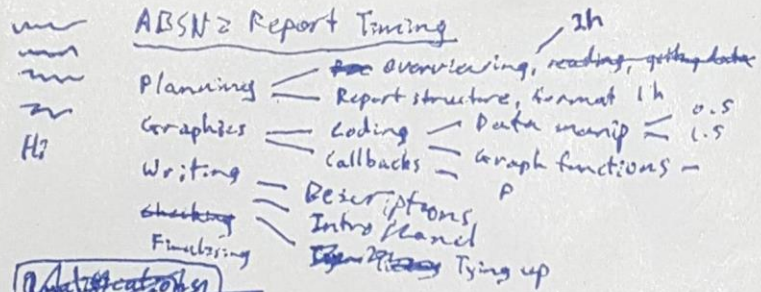 ABSN2 Report Timing
2h
Planning
Overviewing, reading, getting data
Report structure, format 1h
Graphics
Coding
Data manip
0.5
1.5
Callbacks
Graph functions
P
Writing
Descriptions
Checking
Intro
Finalising
Tying up
Hi